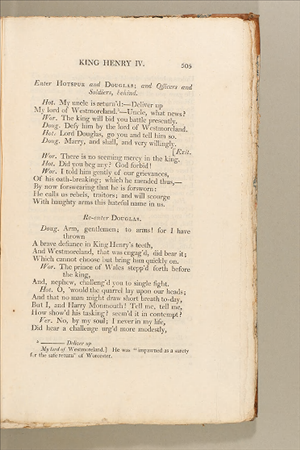 KING HENRY IV. 205
Enter HOTSPUR and DOUGLAS; and Officers and
Soldiers, behind.
Hot. My uncle is return'd:—Deliver up
My lord of Westmoreland.¹—Uncle, what news?
Wor. The king will bid you battle presently.
Doug. Defy him by the lord of Westmoreland.
Hot. Lord Douglas, go you and tell him so.
Doug. Marry, and shall, and very willingly.
[Exit.
Wor. There is no seeming mercy in the king.
Hot. Did you beg any? God forbid!
Wor. I told him gently of our grievances,
Of his oath-breaking; which he mended thus,—
By now forswearing that he is forsworn:
He calls us rebels, traitors; and will scourge
With haughty arms this hateful name in us.
Re-enter DOUGLAS.
Doug. Arm, gentlemen; to arms! for I have
thrown
A brave defiance in King Henry's teeth,
And Westmoreland, that was engag'd, did bear it;
Which cannot choose but bring him quickly on.
Wor. The prince of Wales stepp'd forth before
the king,
And, nephew, challeng'd you to single fight.
Hot. O, 'would the quarrel lay upon our heads;
And that no man might draw short breath to-day,
But I, and Harry Monmouth! Tell me, tell me,
How show'd his tasking? seem'd it in contempt?
Ver. No, by my soul; I never in my life,
Did hear a challenge urg'd more modestly,
Deliver up
My lord of Westmoreland.] He was "impawned as a surety
for the safe return" of Worcester.